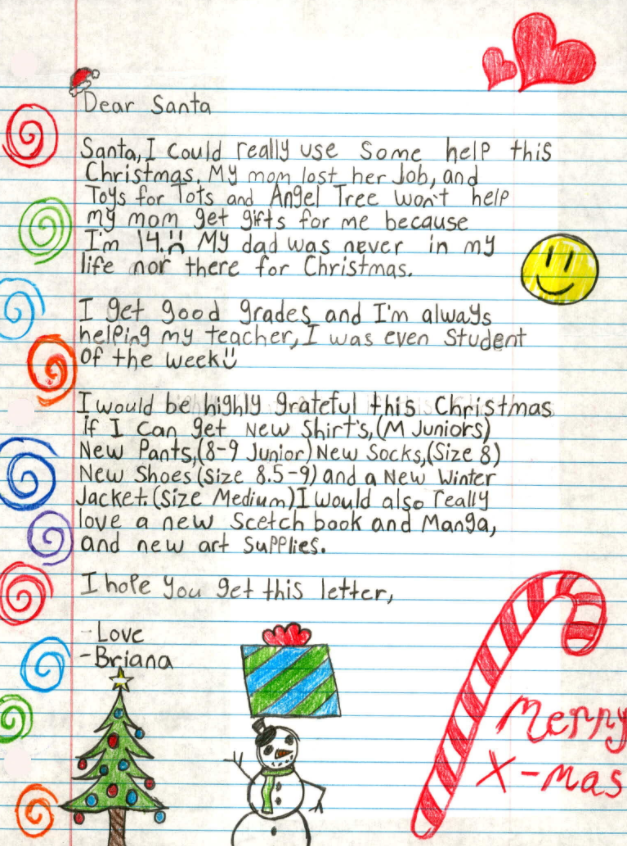 Dear Santa
Santa, I could really use some help this
Christmas. My mom lost her Job, and
Toys for Tots and Angel Tree won't help
my mom get gifts for me because
I'm 14. :( My dad was never in my
life nor there for Christmas.
I get good grades and I'm always
helping my teacher, I was even Student
of the week :)
I would be highly grateful this Christmas
if I can get New Shirt's, (M Juniors)
New Pants, (8-9 Junior) New Socks, (Size 8)
New Shoes (Size 8.5-9) and a New Winter
Jacket. (Size Medium) I would also really
love a new Scetch book and Manga,
and new art supplies.
I hope you get this letter,
-Love
-Briana
Merry
X-mas